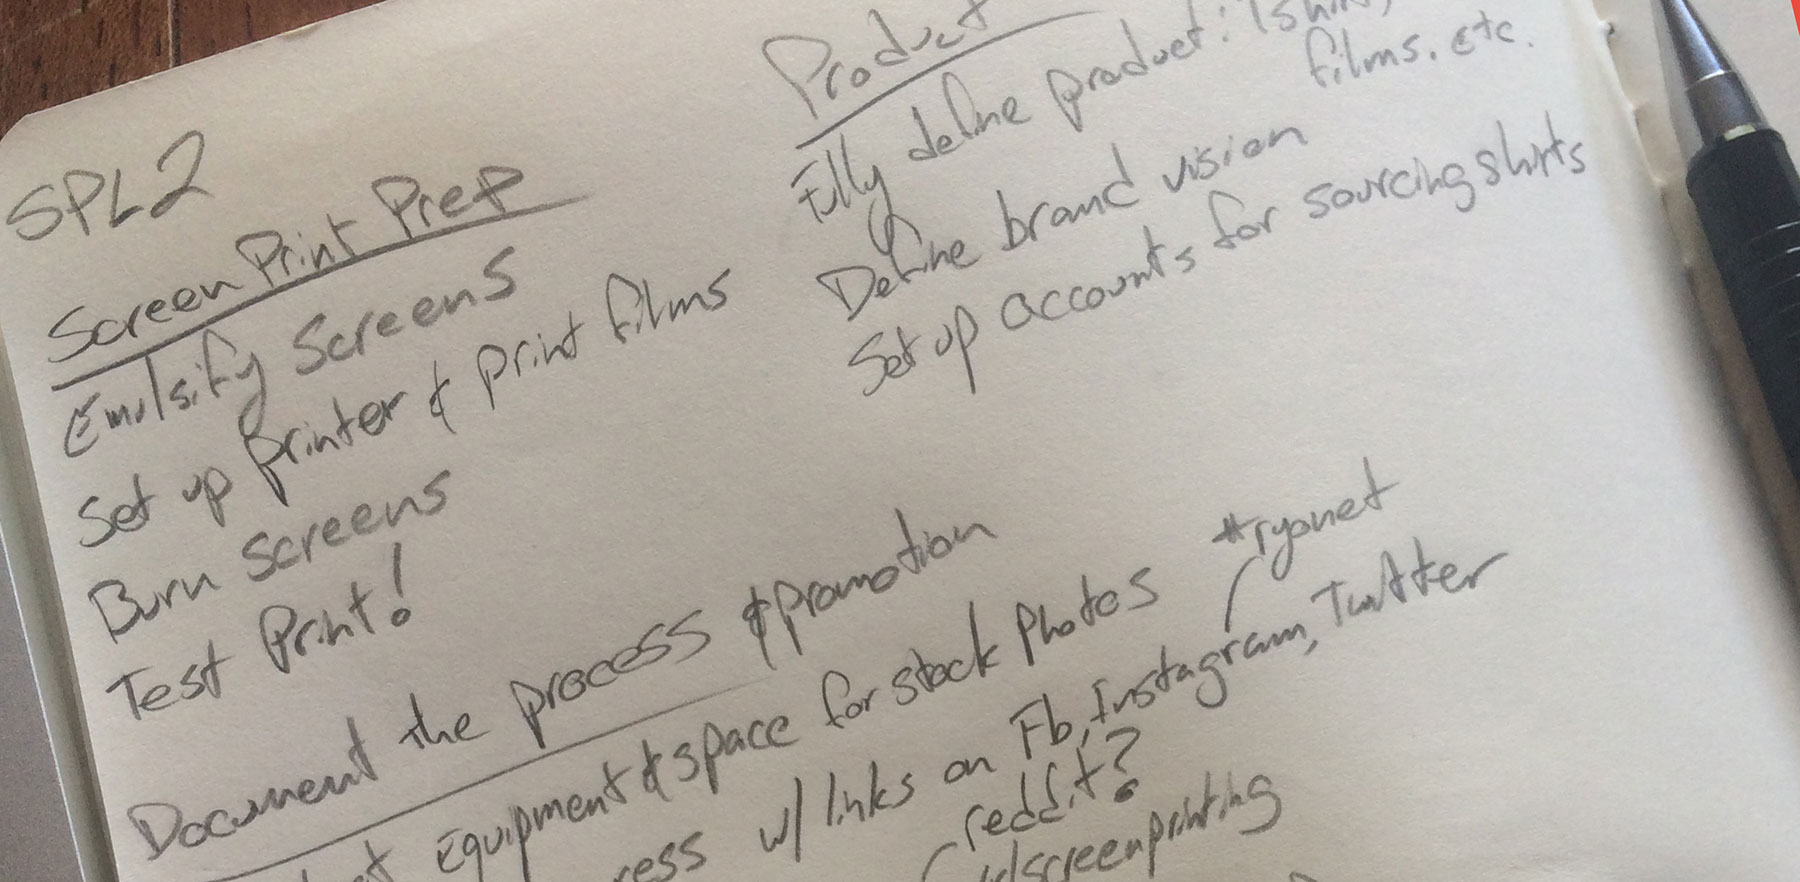 SPL2
Screen Print Prep
Emulsify Screens
Set up printer & print films
Burn screens
Test Print!
Product
Fully define product: Tshirt,
films. etc.
Define brand vision
Set up accounts for sourcing shirts
Document the process & promotion
Equipment & space for stock photos
#ryonet
w/ links on Fb, Instagram, Twitter
reddit?
screenprinting